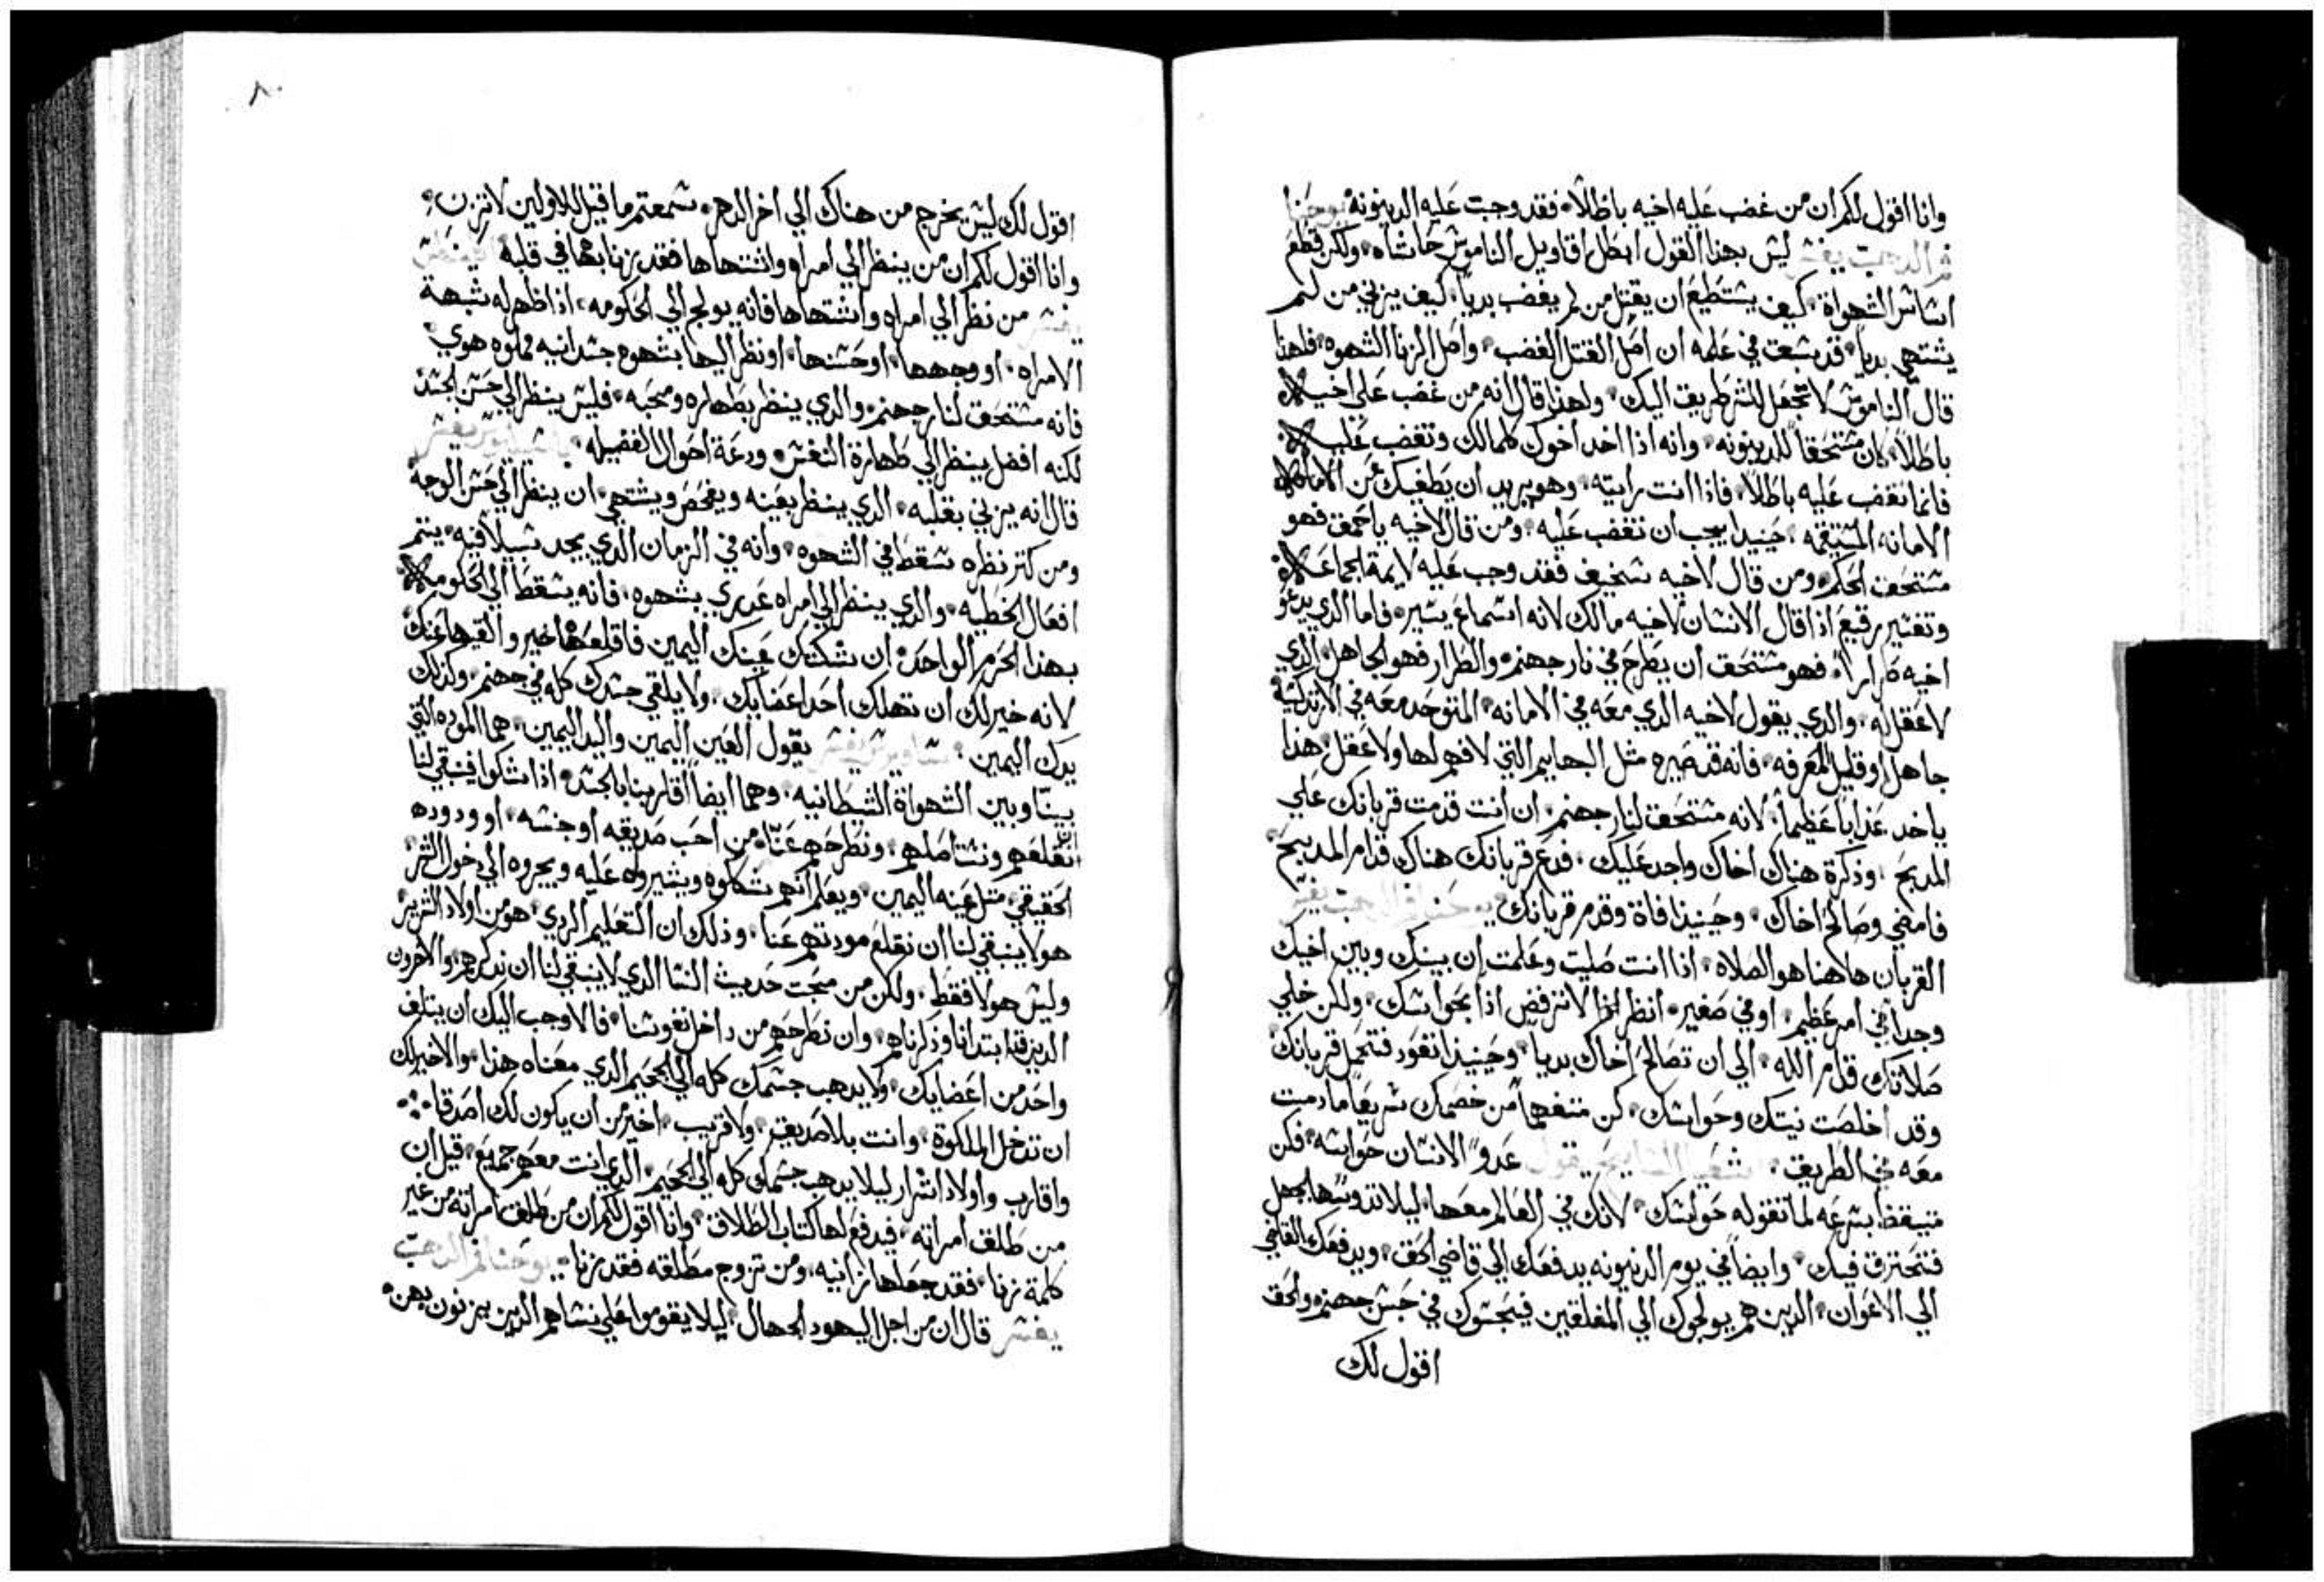 وانا اقول لكم ان من غضب عَليه اخيه باطلًا فقد وجبت عَليه الدينونه يوحنا
فم الدهب يفسر ليش بهذا القول ابطل اقاويل الناموش حاشاه ولكن قطع
اشاش الشهواة كيف يشتطيع ان يقتل من لم يغضب بديا كيف يزني من لم
يشتهي بديا قد شبق في عَلمه ان اصل القتل الغضب واصل الزنا الشهوه فلهذا
قال الناموش لا تجعَل للشر طريق اليك ولهذا قال انه من غضب عَلي اخيه
باطلًا كان مشتحَقًا للدينونه وانه اذا اخد اخوك كلمالك وتغضب عَليه
فانما تغضب عَليه باطلًا فاذا انت رايته وهو يريد ان يَطغيك عَن الامانه
الامانه المشتقيمه حَينيدا يجب ان تغضب عَليه ومن قال لاخيه ياحَمق فهو
مشتحَق الحَكم ومن قال لاخيه شخيف فقد وجب عَليه لايمة الجماعَه
وتفشير رقيع اذا قال الانشان لاخيه مالك لانه اشماع يشير فاما الدي يدعَو
اخيه طرارًا فهو مشتحَق ان يطرح في نار جهنم والطرار فهو الجاهل الدي
لا عَقل له والدي يقول لاخيه الدي معَه في الامانه المتوحد معَه في الارتدكشية
جاهل او قليل المعَرفه فانه قد صَيره مثل البهايم التي لا فهم لها ولا عَقل هذا
ياخد عَذابًا عَظيمًا لانه مشتحَق لنار جهنم ان انت قدمت قربانك عَلي
المدبح وذكرة هناك اخاك واجد عَليك فدع قربانك هناك قدام المدبح
فامضي وصَالح اخاك وحَينيذا فاة وقدم قربانك يوحَنا فم الدهب يفسر
القربان هاهنا هو الصلاه اذا انت صَليت وعَلمت ان بينك وبين اخيك
وجدًا في امر عَظيم او في صَغير انظر اذا لا ترفض اذا بحَواشك ولكن خلي
صَلاتك قدام الله الي ان تصَالح اخاك بديا وحَينيذا تعَود فتحَمل قربانك
وقد اخلصَت نيتك وحَواشك كن متفهمًا من خصَمك شريعًا مادمت
معَه في الطريق يقول عَدو الانشان حَواشه فكن
متيقظا بشرعَه لما تقوله حَواشك لانك في العَالم معَها ليلا تدوشها بجهل
فتحَترق فيك وايضا في يوم الدينونه يدفعَك الي قاضي الحَق ويدفعَك القاضي
الي الاعَوان الدين هم يولجوك الي المغلقين فيحَبشوك في حَبش جهنم والحَق
اقول لك
٨٠
اقول لك ليش يخرج من هناك الي اخر الدهر شمعتم ما قيل للاولين لا تزن
وانا اقول لكم ان من ينظر الي امراه واشتهاها فقد زنا بها في قلبه
يفسر من نظر الي امراه واشتهاها فانه يولج الي الحَكومه اذا ظهر له شبهة
الامراه او وجهها او حَشنها او نظر اليها بشهوه جشدانيه مملوه هوي
فانه مشتحَق لنار جهنم والدي ينظر بطهاره ومحَبه فليش ينظر الي حَشن الجشد
لكنه افضل ينظر الي طهارة النفش ودعَة احَوال الفضيله باشيليوش يفسر
قال انه يزني بقلبه الدي ينظر بعَينه ويفحَص ويشتهي ان ينظر الي حَشن الوجه
ومن كتر نظره شقط في الشهوه وانه في الزمان الدي يجد شبيلا فيه يتم
افعَال الخطيه والدي ينظر الي امراه عَدري بشهوه فانه يشقط الي الحَكومه
بهذا الحَرم الواحَد ان شككتك عَينك اليمين فاقلعَها خير والقيها عَنك
لانه خير لك ان تهلك احَد اعضايك ولا يلقي جشدك كله في جهنم وكذلك
يدك اليمين شاويرش يفسر يقول العَين اليمين واليد اليمين هما الموده التي
بيننا وبين الشهواة الشيطانيه وهما ايضًا اقاربنا بالجشد اذا شكوا فينبقي لنا
ان نقلعَهم ونشتاصلهم ونطرحَهم عَنا من احَب صَديقه او جنشه او ودوده
الحَقيقي مثل عَينه اليمين ويعَلم انهم شكوه ويشيروا عَليه ويجروه الي دخول الشر
هولا ينبقي لنا ان نقلع مودتهم عَنا وذلك ان التعَليم الردي هو من اولاد الشرير
وليش هولا فقط ولكن من محَبت حَديث النشا الدي لا ينبقي لنا ان ندكرهم والاخرون
الدين قد ابتدانا وذكرناهم وان نطرحَهم من داخل نفوشنا فالاوجب اليك ان يتلف
واحَد من اعَضايك ولا يدهب جشمك كله الي الجحَيم الدي معَناه هذا والاخير لك
ان تدخل الملكوة وانت بلا صَديق ولا قريب اخير من ان يكون لك اصَدقا
واقارب واولاد اشرار ليلا يدهب جشمك كله الي الجحَيم الدي انت معَهم جميع قيل ان
من طلق امراته فيدفع لها كتاب الطلاق وانا اقول لكم ان من طلق امراته من غير
كلمة زنا فقد جعَلها زانيه ومن تزوج مطلقه فقد زنا يوحَنا فم الدهب
يفسر قال ان من اجل اليهود الجهال ليلا يقوموا عَلي نشاهم الدين يزنون بهن